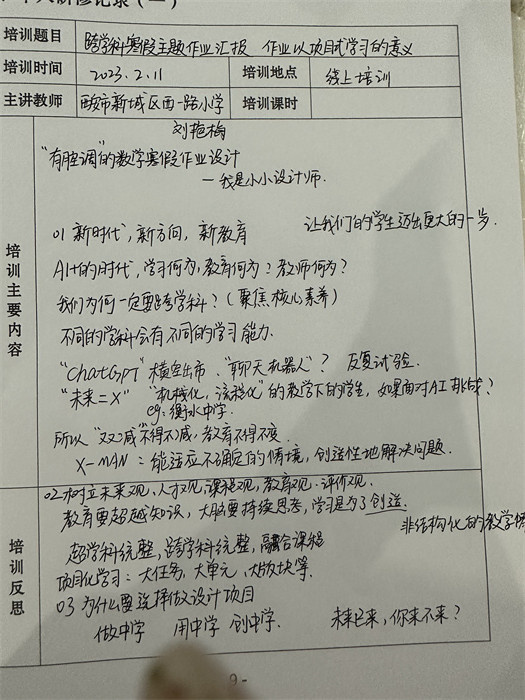 个人研修记录(一)
培训题目 跨学科寒假主题作业汇报 作业以项目式学习的意义
培训时间 2023.2.11 培训地点 线上培训
主讲教师 西安市新城区西一路小学 培训课时
刘艳梅
培训主要内容
"有腔调"的数学寒假作业设计
—我是小小设计师.
01 新时代,新方向,新教育 让我们的学生迈出更大的一步.
AI+的时代,学习何为,教育何为?教师何为?
我们为何一定要跨学科?(聚焦核心素养)
不同的学科会有不同的学习能力.
"ChatGPT"横空出市、"聊天机器人"? 反复试验.
"未来=X" "机械化,流程化"的教学下的学生,如果面对AI挑战?
eg:衡水中学.
所以"双减"不得不减,教育不得不变.
X-MAN:能适应不确定的情境,创造性地解决问题.
培训反思
02 树立未来观、人才观、课程观,教育观、评价观.
教育要超越知识,大脑要持续思考,学习是为了创造.
非结构化的教学情
超学科统整,跨学科统整,融合课程
项目化学习:大任务,大单元,大版块等.
03 为什么要选择做设计项目
做中学 用中学 创中学. 未来已来,你来不来?
- 9 -